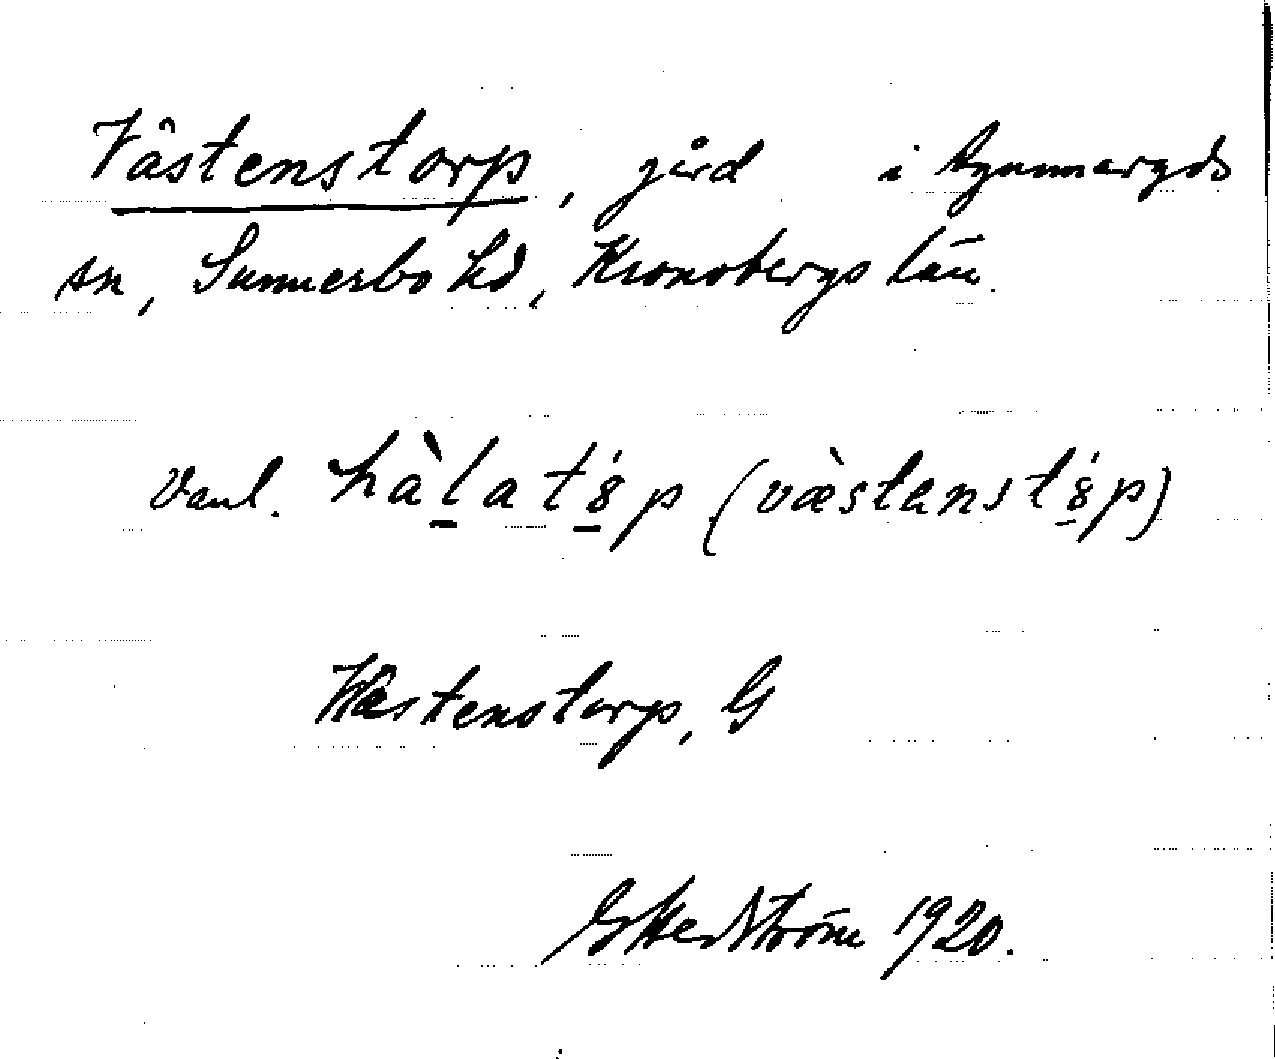 Västenstorp, gård i Agunnaryds
sn, Sunnerbo hd, Kronobergs län.
Vanl. hàlatörp (væ̀stanstörp)
Wæstenstorp, G
G Hedström 1920.